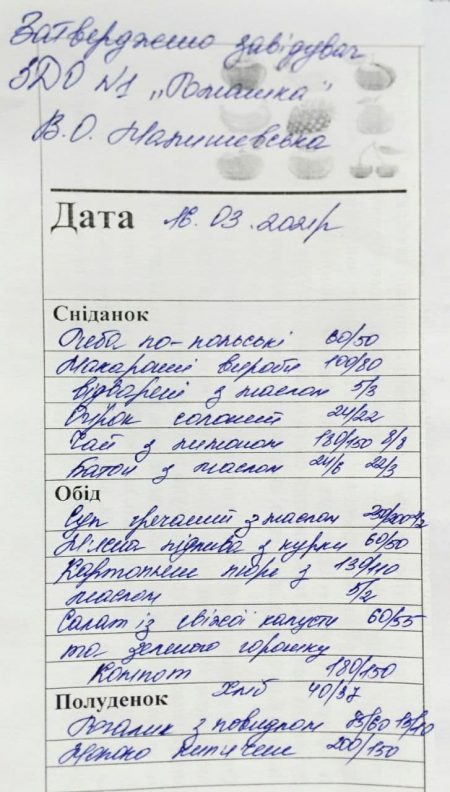 Затверджено завідувач
ЗДО №1 „Ромашка"
В.О. Малишевська
Дата 16.03.2021р
Сніданок
Риба по-польські 60/50
Макаронні вироби 100/80
відварені з маслом 5/3
Огірок солоний 24/22
Чай з лимоном 180/150 8/8
Батон з маслом 24/6 22/3
Обід
Суп гречаний з маслом 250/200
М'ясна підлива з курки 60/50
Картопляне пюре з 130/110
маслом 5/2
Салат із свіжої капусти 60/55
та зеленого горошку
Компот 180/150
Хліб 40/37
Полуденок
Рогалик з повидлом 75/60 15/10
Молоко кипячене 200/150